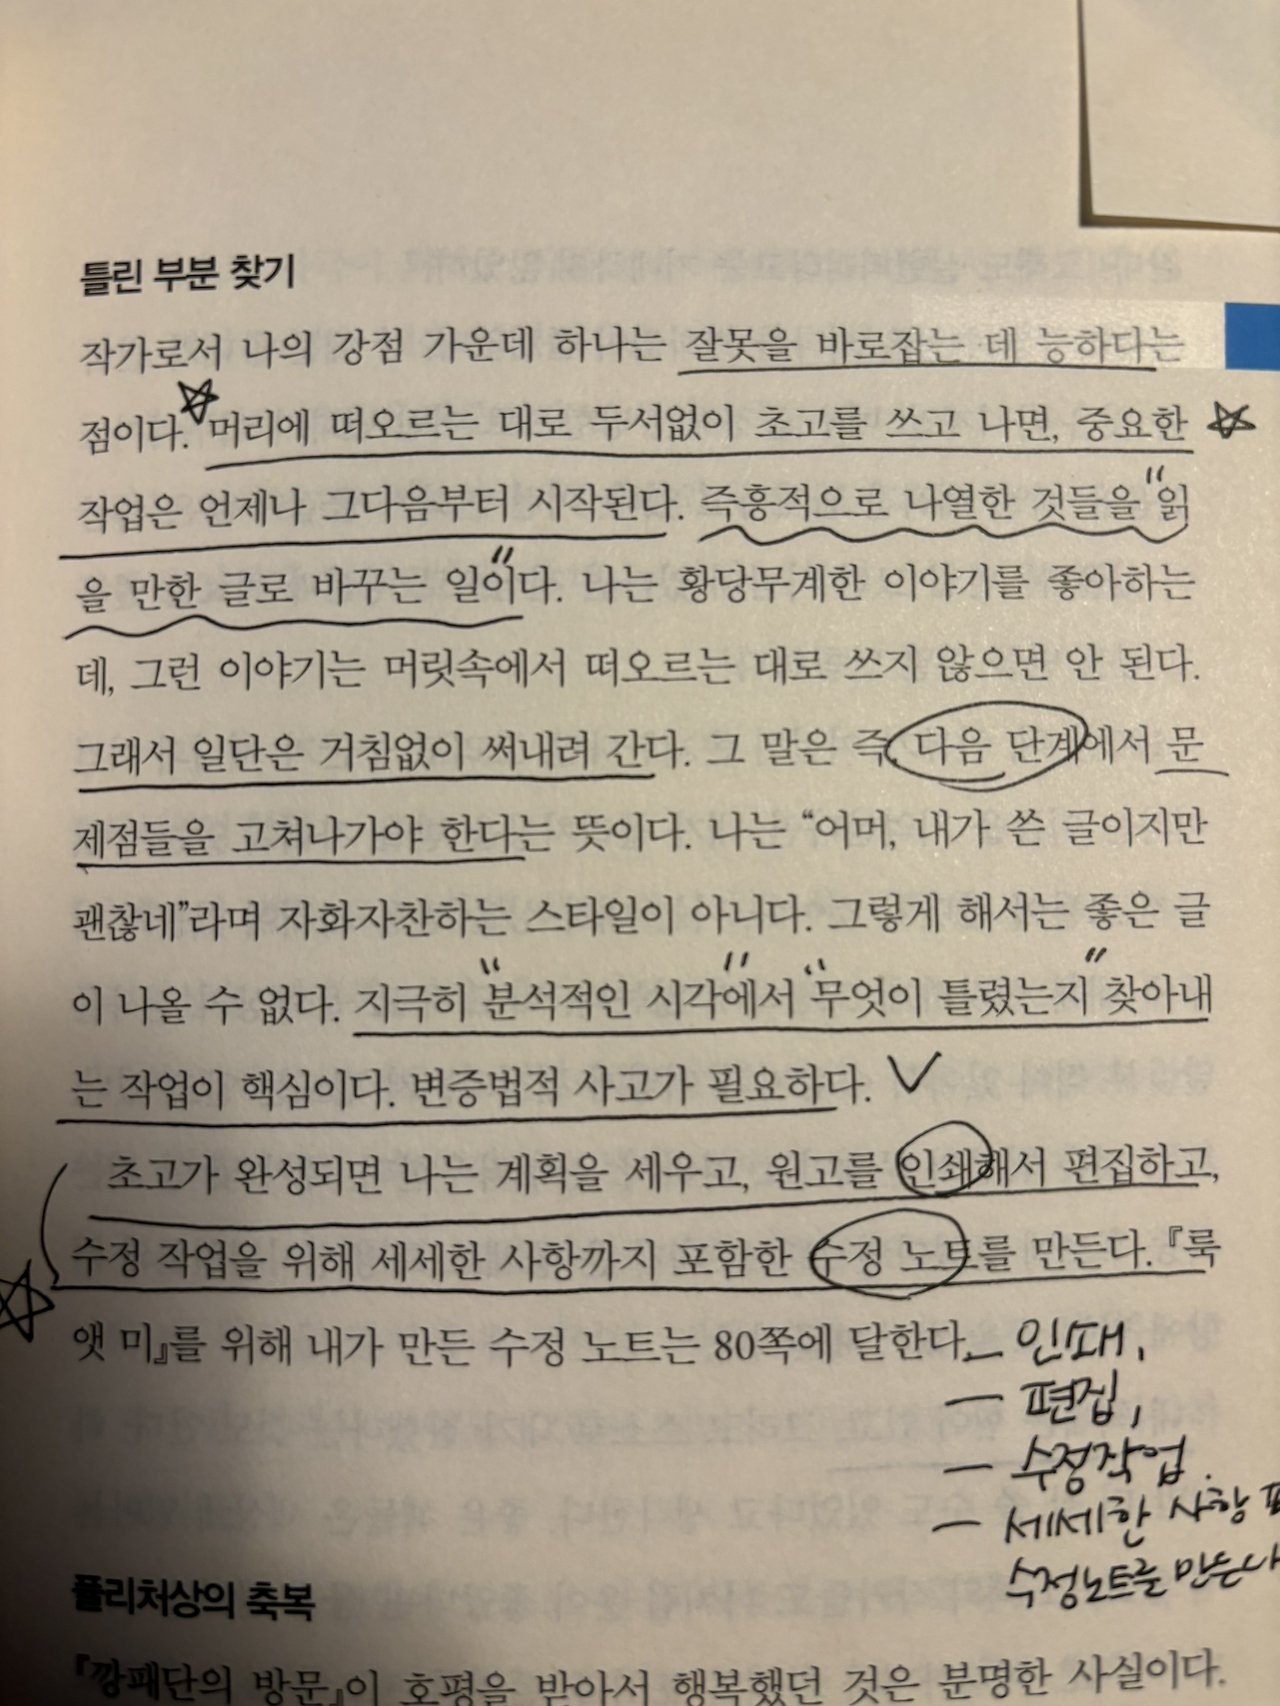 틀린 부분 찾기
작가로서 나의 강점 가운데 하나는 잘못을 바로잡는 데 능하다는
점이다. 머리에 떠오르는 대로 두서없이 초고를 쓰고 나면, 중요한
작업은 언제나 그다음부터 시작된다. 즉흥적으로 나열한 것들을 "읽
을 만한 글로 바꾸는 일"이다. 나는 황당무계한 이야기를 좋아하는
데, 그런 이야기는 머릿속에서 떠오르는 대로 쓰지 않으면 안 된다.
그래서 일단은 거침없이 써내려 간다. 그 말은 즉, 다음 단계에서 문
제점들을 고쳐나가야 한다는 뜻이다. 나는 “어머, 내가 쓴 글이지만
괜찮네”라며 자화자찬하는 스타일이 아니다. 그렇게 해서는 좋은 글
이 나올 수 없다. 지극히 "분석적인 시각"에서 "무엇이 틀렸는지" 찾아내
는 작업이 핵심이다. 변증법적 사고가 필요하다.
초고가 완성되면 나는 계획을 세우고, 원고를 인쇄해서 편집하고,
수정 작업을 위해 세세한 사항까지 포함한 수정 노트를 만든다. 『룩
앳 미』를 위해 내가 만든 수정 노트는 80쪽에 달한다.
- 인쇄,
- 편집,
- 수정작업.
- 세세한 사항
수정노트를 만든다
퓰리처상의 축복
『깡패단의 방문』이 호평을 받아서 행복했던 것은 분명한 사실이다.